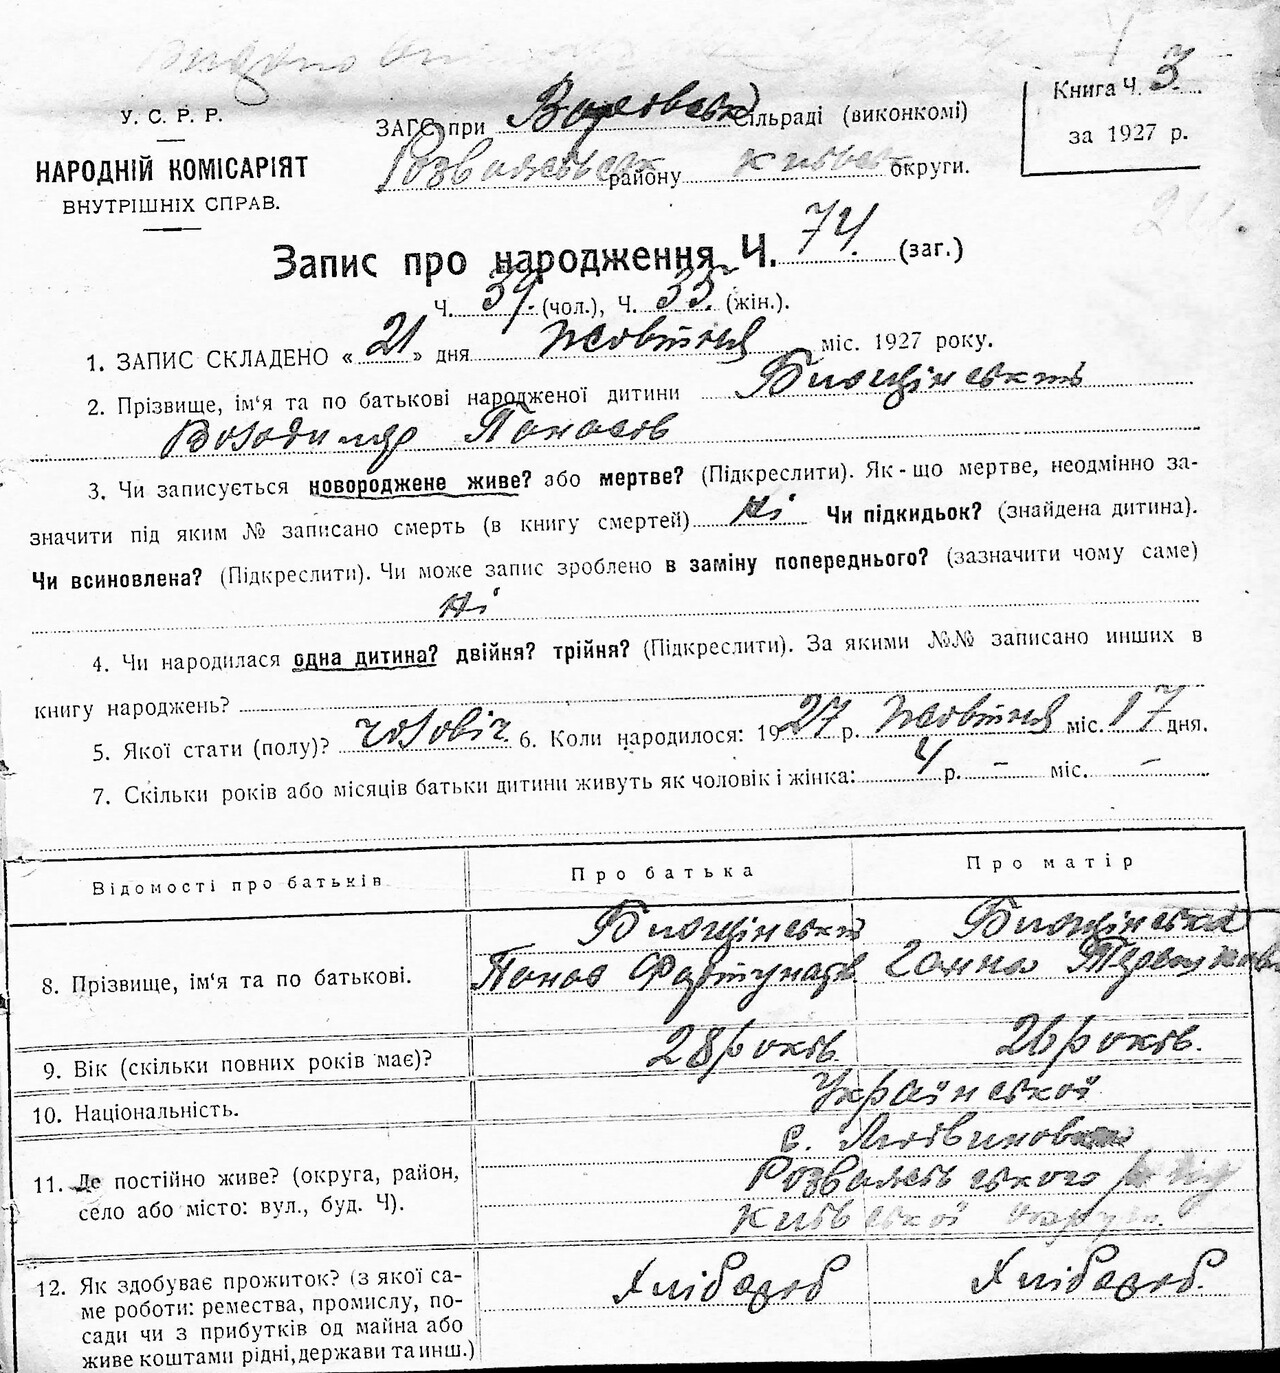 У. С. Р. Р.
НАРОДНІЙ КОМІСАРІЯТ
ВНУТРІШНІХ СПРАВ.
ЗАГС при сільраді (виконкомі)
Розважівськ району Київськ округи.
Книга Ч. 3.
за 1927 р.
Запис про народження Ч. 74. (заг.)
Ч. 39. (чол.), Ч. 35. (жін.).
1. ЗАПИС СКЛАДЕНО « 21 » дня Жовтня міс. 1927 року.
2. Прізвище, ім‘я та по батькові народженої дитини
Володимир Панасов
3. Чи записується новороджене живе? або мертве? (Підкреслити). Як-що мертве, неодмінно за-
значити під яким № записано смерть (в книгу смертей) Ні Чи підкидьок? (знайдена дитина).
Чи всиновлена? (Підкреслити). Чи може запис зроблено в заміну попереднього? (зазначити чому саме)
Ні
4. Чи народилася одна дитина? двійня? трійня? (Підкреслити). За якими №№ записано инших в
книгу народжень?
5. Якої стати (полу)? чоловіч 6. Коли народилося: 1927 р. Жовтня міс. 17 дня.
7. Скільки років або місяців батьки дитини живуть як чоловік і жінка: 4 р. – міс. –
Відомості про батьків
Про батька
Про матір
8. Прізвище, ім‘я та по батькові.
Панас Фортунатов
Ганна
9. Вік (скільки повних років має)?
28 років
26 років.
10. Національність.
Української
11. Де постійно живе? (округа, район,
село або місто: вул., буд. Ч).
с.
Розважівського
Київської округи.
12. Як здобуває прожиток? (з якої са-
ме роботи: ремества, промислу, по-
сади чи з прибутків од майна або
живе коштами рідні, держави та инш.)
Хлібороб
Хлібороб.